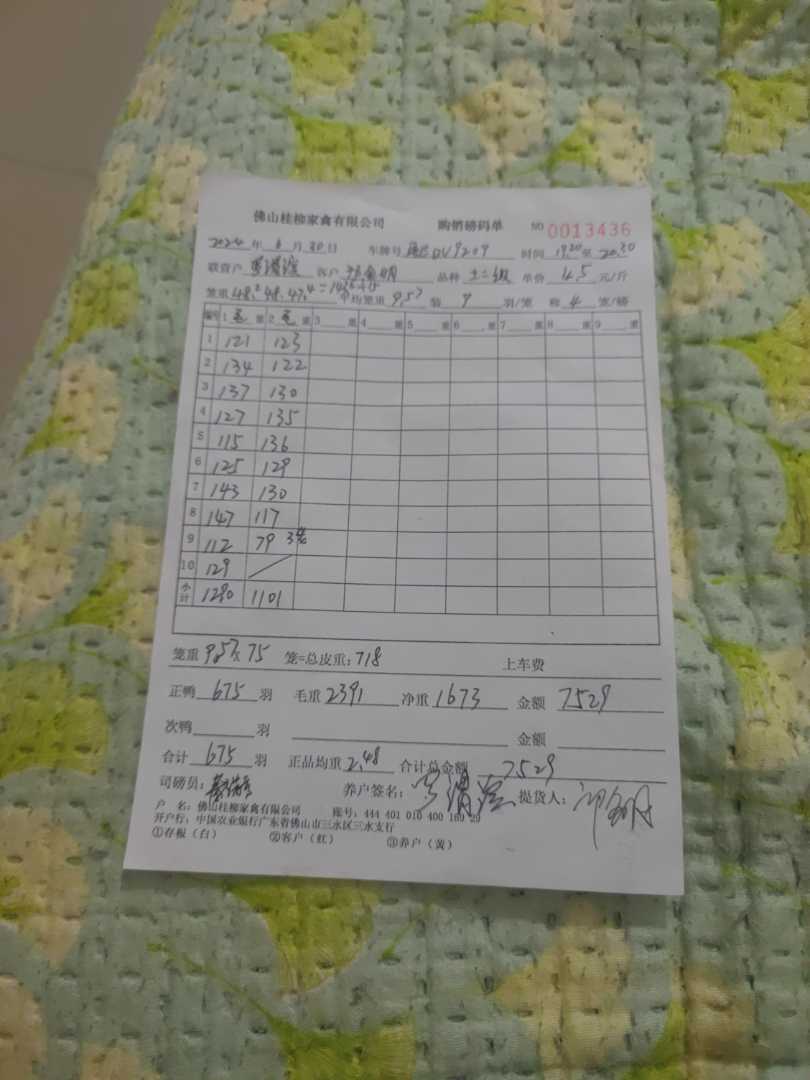 佛山桂柳家禽有限公司 购销磅码单 NO 0013436
2024年6月30日 车牌号 DV9209 时间 19.20至20.30
联营户 客户 品种 土二级 单价 4.5 元/斤
笼重 48.2 48. 47.4 平均笼重 9.57 装 9 羽/笼 称 4 笼/磅
编号 1 毛 重 2 毛 重 3 重 4 重 5 重 6 重 7 重 8 重 9 重
1 121 123
2 134 122
3 137 130
4 127 135
5 115 136
6 125 129
7 143 130
8 147 117
9 112 79 3笼
10 129
小计 1290 1101
笼重 9.57x75 笼=总皮重:718 上车费
正鸭 675 羽 毛重 2391 净重 1673 金额 7529
次鸭 羽 金额
合计 675 羽 正品均重 2.48 合计总金额 7529
司磅员: 养户签名: 提货人:
户 名:佛山桂柳家禽有限公司 账号:444 401 010 400 160 29
开户行:中国农业银行广东省佛山市三水区三水支行
①存根(白) ②客户(红) ③养户(黄)